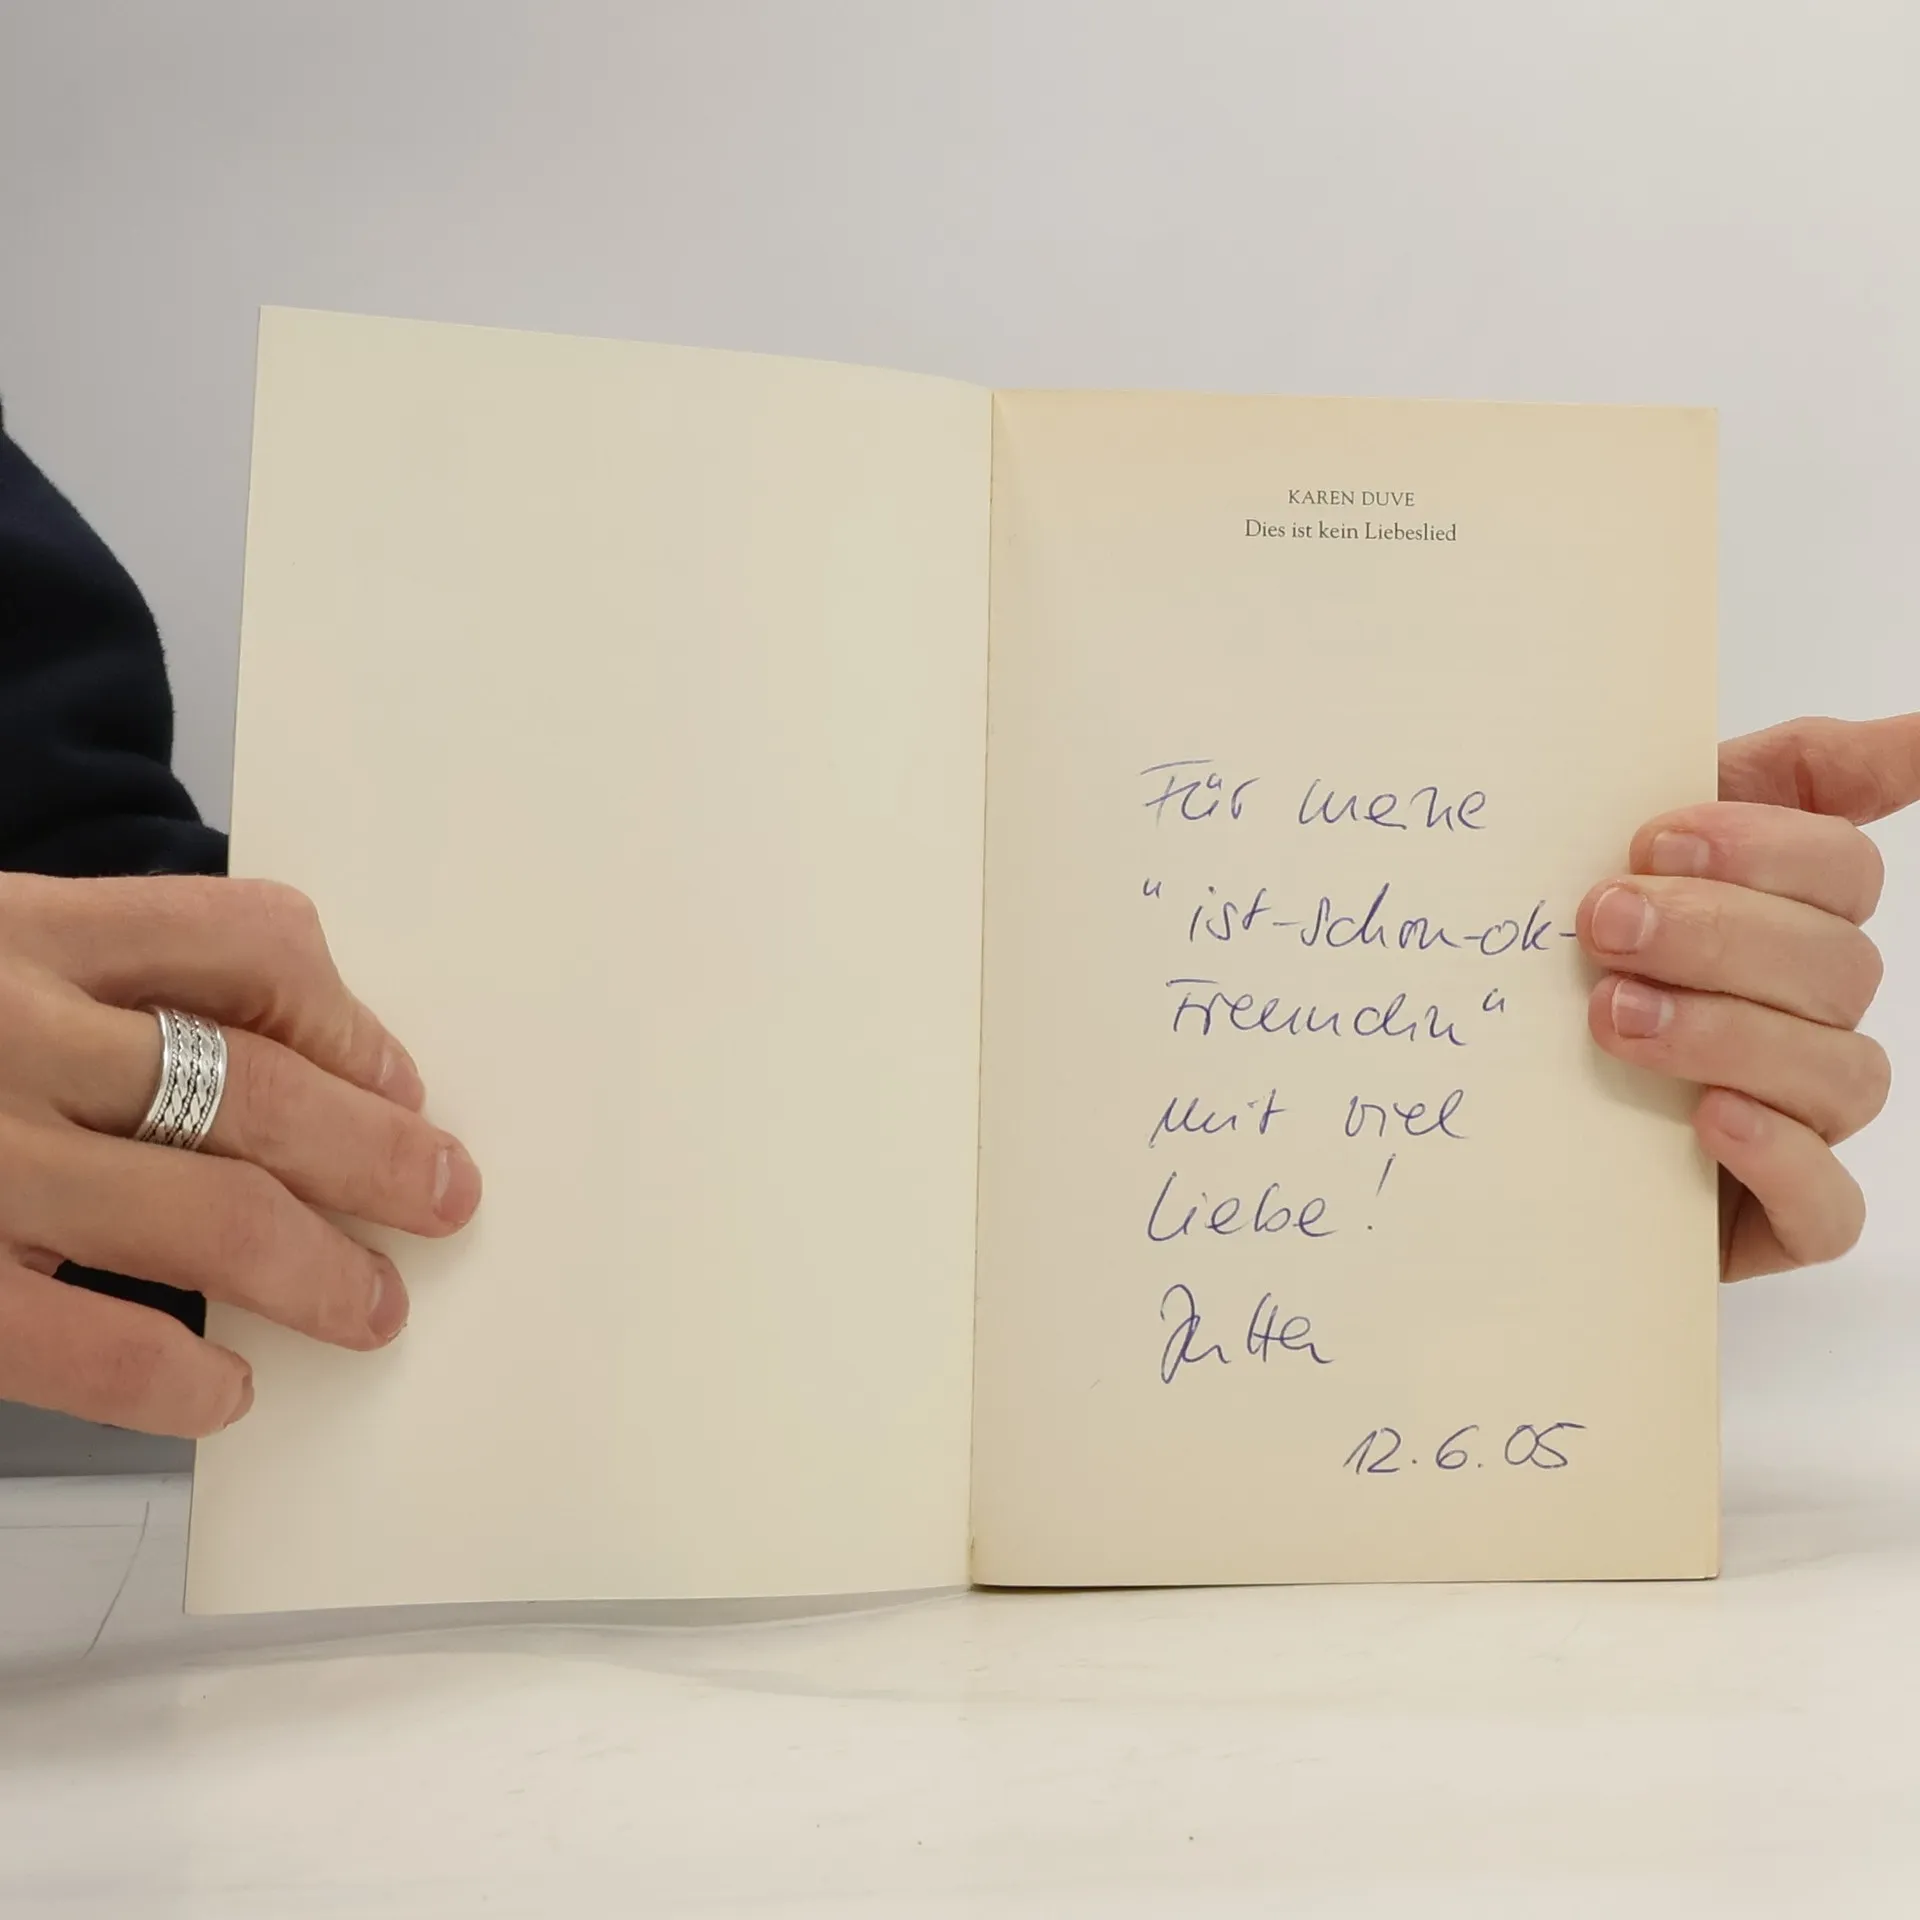 KAREN DUVE
Dies ist kein Liebeslied
Für meine
" ist-schon-ok-
Freundin "
Mit viel
Liebe!
Jutta
12.6.05